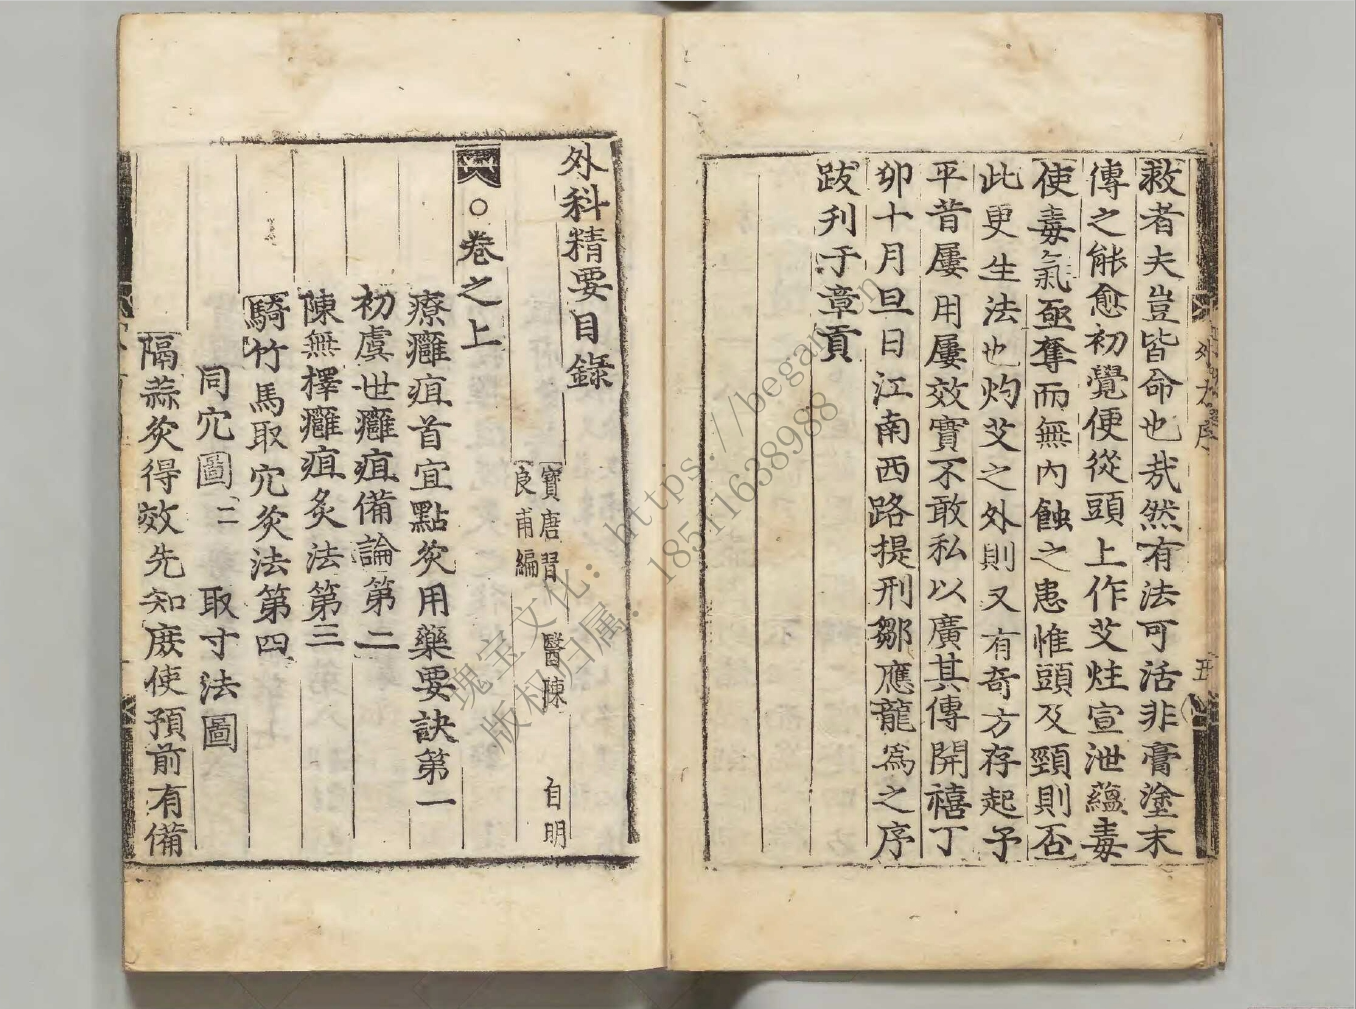 救者夫豈皆命也㢤然有法可活非膏塗末
傳之能愈初覺便從頭上作艾炷宣泄蘊毒
使毒氣亟奪而無內蝕之患惟頭及頸則否
此更生法也灼艾之外則又有奇方存起予
平昔屢用屢效寶不敢私以廣其傳開禧丁
卯十月旦日江南西路提刑鄒應龍為之序
跋刋于章貢
五
外科精要目錄
寶唐習醫陳自明
良甫編
○卷之上
療癰疽首宜點灸用藥要訣第一
初虞世癰疽備論第二
陳無擇癰疽灸法第三
騎竹馬取穴灸法第四
同穴圖二 取寸法圖
隔蒜灸得效先知庶使預前有備
瑰宝文化: https://began
版权归属: 18511638988